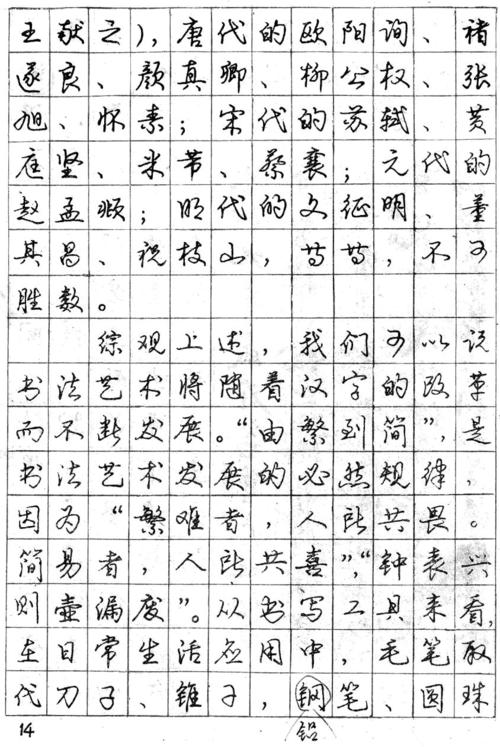 王献之），唐代的欧阳询、褚
遂良、颜真卿、柳公权、张
旭、怀素；宋代的苏轼、黄
庭坚、米芾、蔡襄；元代的
赵孟頫；明代的文征明、董
其昌、祝枝山，等等，不可
胜数。
综观上述，我们可以说
书法艺术将随着汉字的改革
而不断发展。“由繁到简”，是
书法艺术发展的必然规律，
因为“繁难者，人所共畏。
简易者，人所共喜”，“钟表兴
则壶漏废”。从书写工具来看，
在日常生活应用中，毛笔取
代刀子、锥子，钢笔、圆珠
14
铅